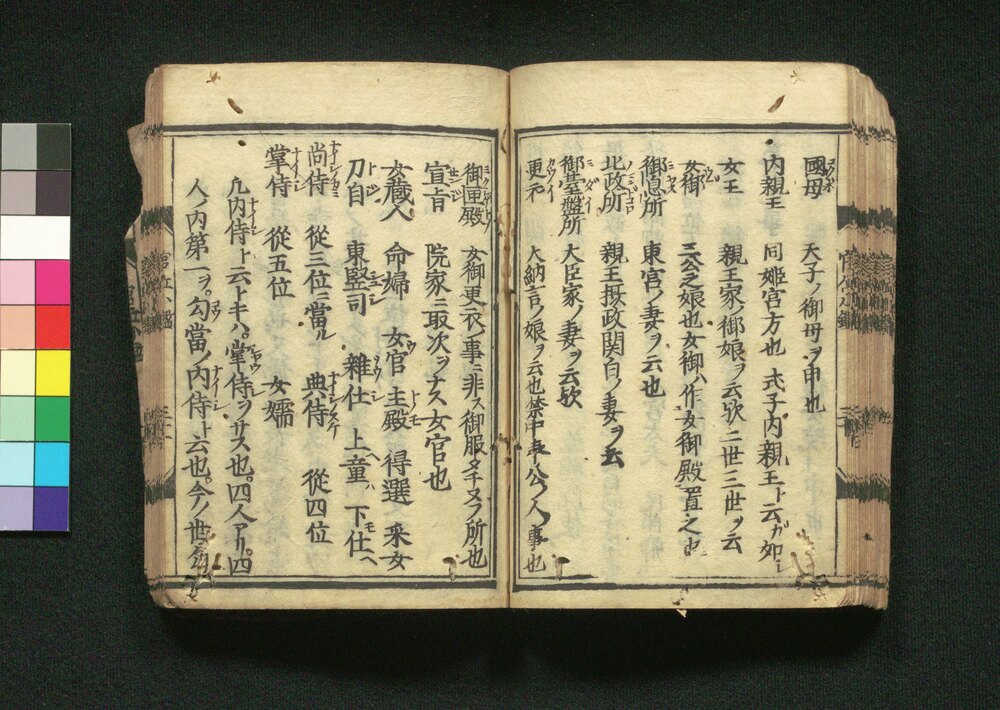 國母 天子ノ御母ヲ申也
内親王 同姫宮方也 式子内親王ト云ガ如シ
女王 親王家ノ御娘ヲ云欤二世三世ヲ云
女御 三公之娘也女御ハ作女御殿置之也
御息所 東宮ノ妻ヲ云也
北政所 親王摂政関白ノ妻ヲ云
御臺盤所 大臣家ノ妻ヲ云欤
更衣 大納言ノ娘ヲ云也禁中奉公ノ人事也
御匣殿 女御更衣ノ事ニ非ス御服タチヌフ所也
宣旨 院家ニ取次ヲナス女官也
女蔵人 命婦 女官 主殿 得選 釆女
刀自 東竪司 雑仕 上童 下仕
尚侍 從三位ニ當ル 典侍 從四位
掌侍 從五位 女孺
凡内侍ト云トキハ。掌侍ヲサス也。四人アリ。四
人ノ内第一ヲ。勾當ノ内侍ト云也。今ノ世